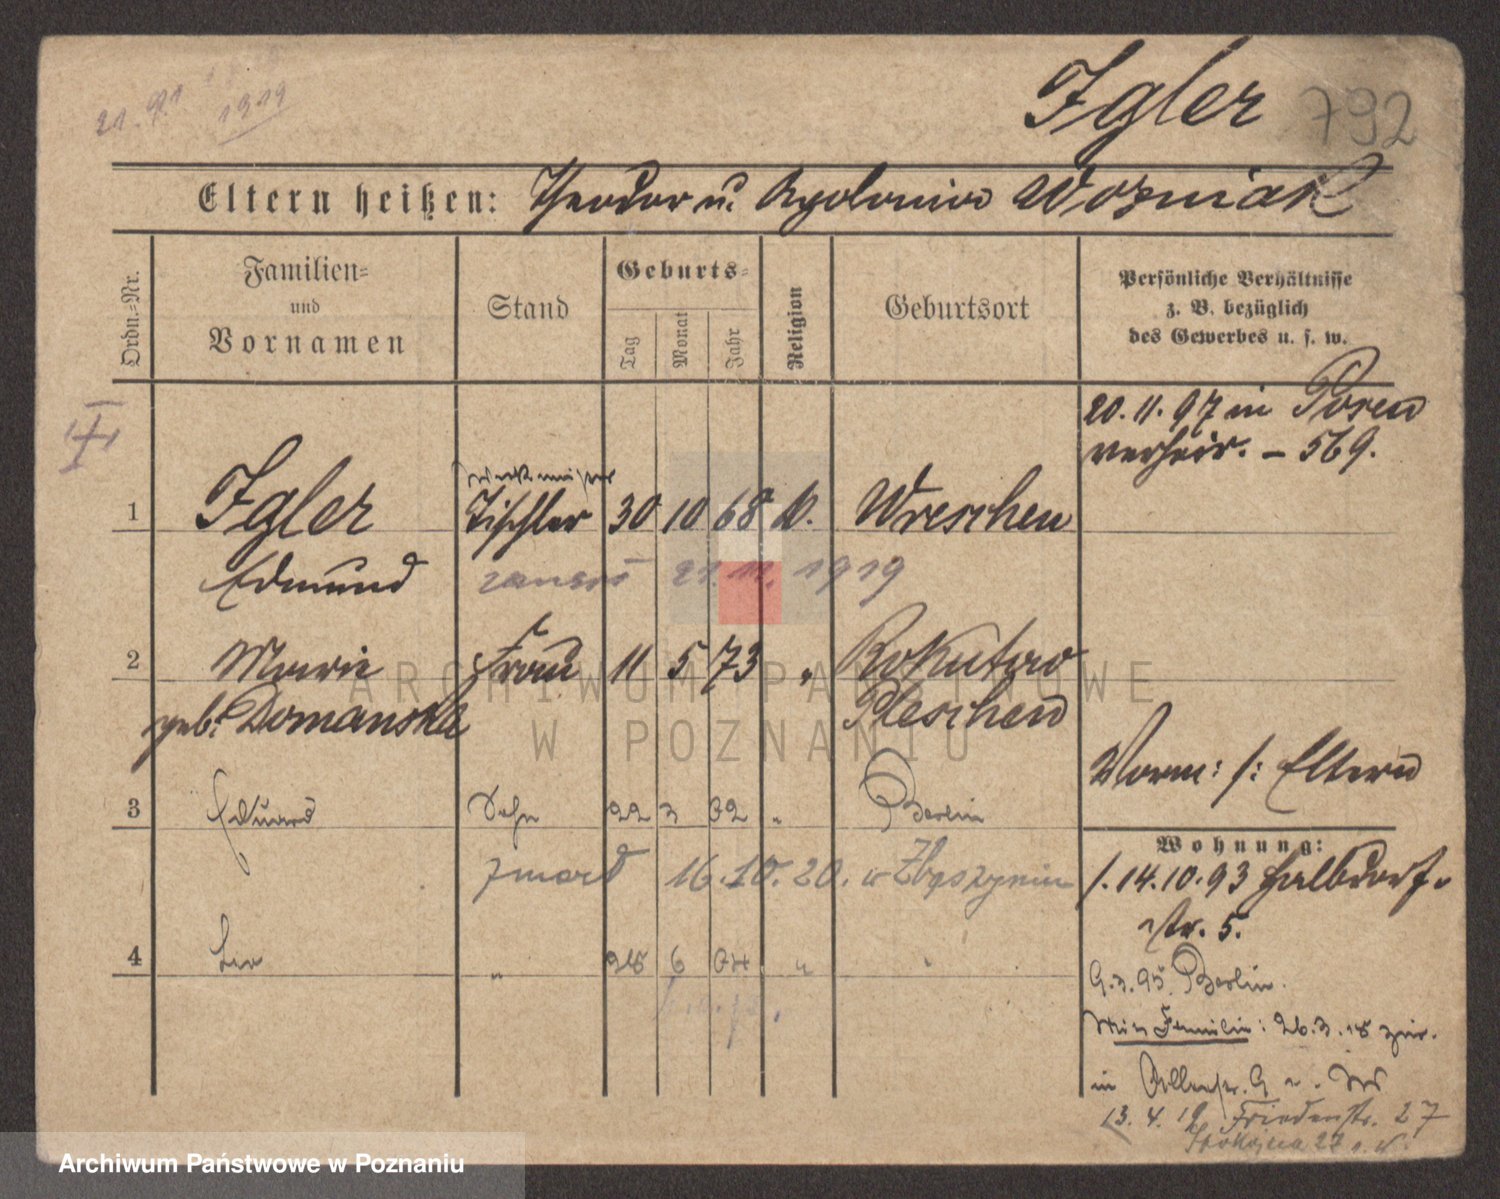 21. 9.1
1919
Igler 792
Eltern heißen: Theodor u. Apolonia Wozniak
Ordn.=Nr.
Familien=
und
Vornamen
Stand
Geburts=
Tag
Monat
Jahr
Religion
Geburtsort
Persönliche Verhältnisse
z. B. bezüglich
des Gewerbes u. s. w.
20. 11. 97 in Posen
verheir. – 569.
Werkmeister
1 Igler Tischler 30 10 68 k. Wreschen
Edmund 21. 11. 1919
2 Marie Frau 11 5 73 " Rokutow
geb. Domanska Pleschen
Vorm: s: Eltern
3 Eduard Sohn 22 3 02 " Berlin
Wohnung:
zmarł 16.10.20. w Zbąszyniu
s. 14.10.93 Halbdorf-
str. 5.
4 Leo " 6 04 " "
9.3.95 Berlin.
Mit Familie: 26.3.18 zur.
in
13. 4. 19 Friedenstr. 27
Spokojna 27
ARCHIWUM PAŃSTWOWE
W POZNANIU
Archiwum Państwowe w Poznaniu